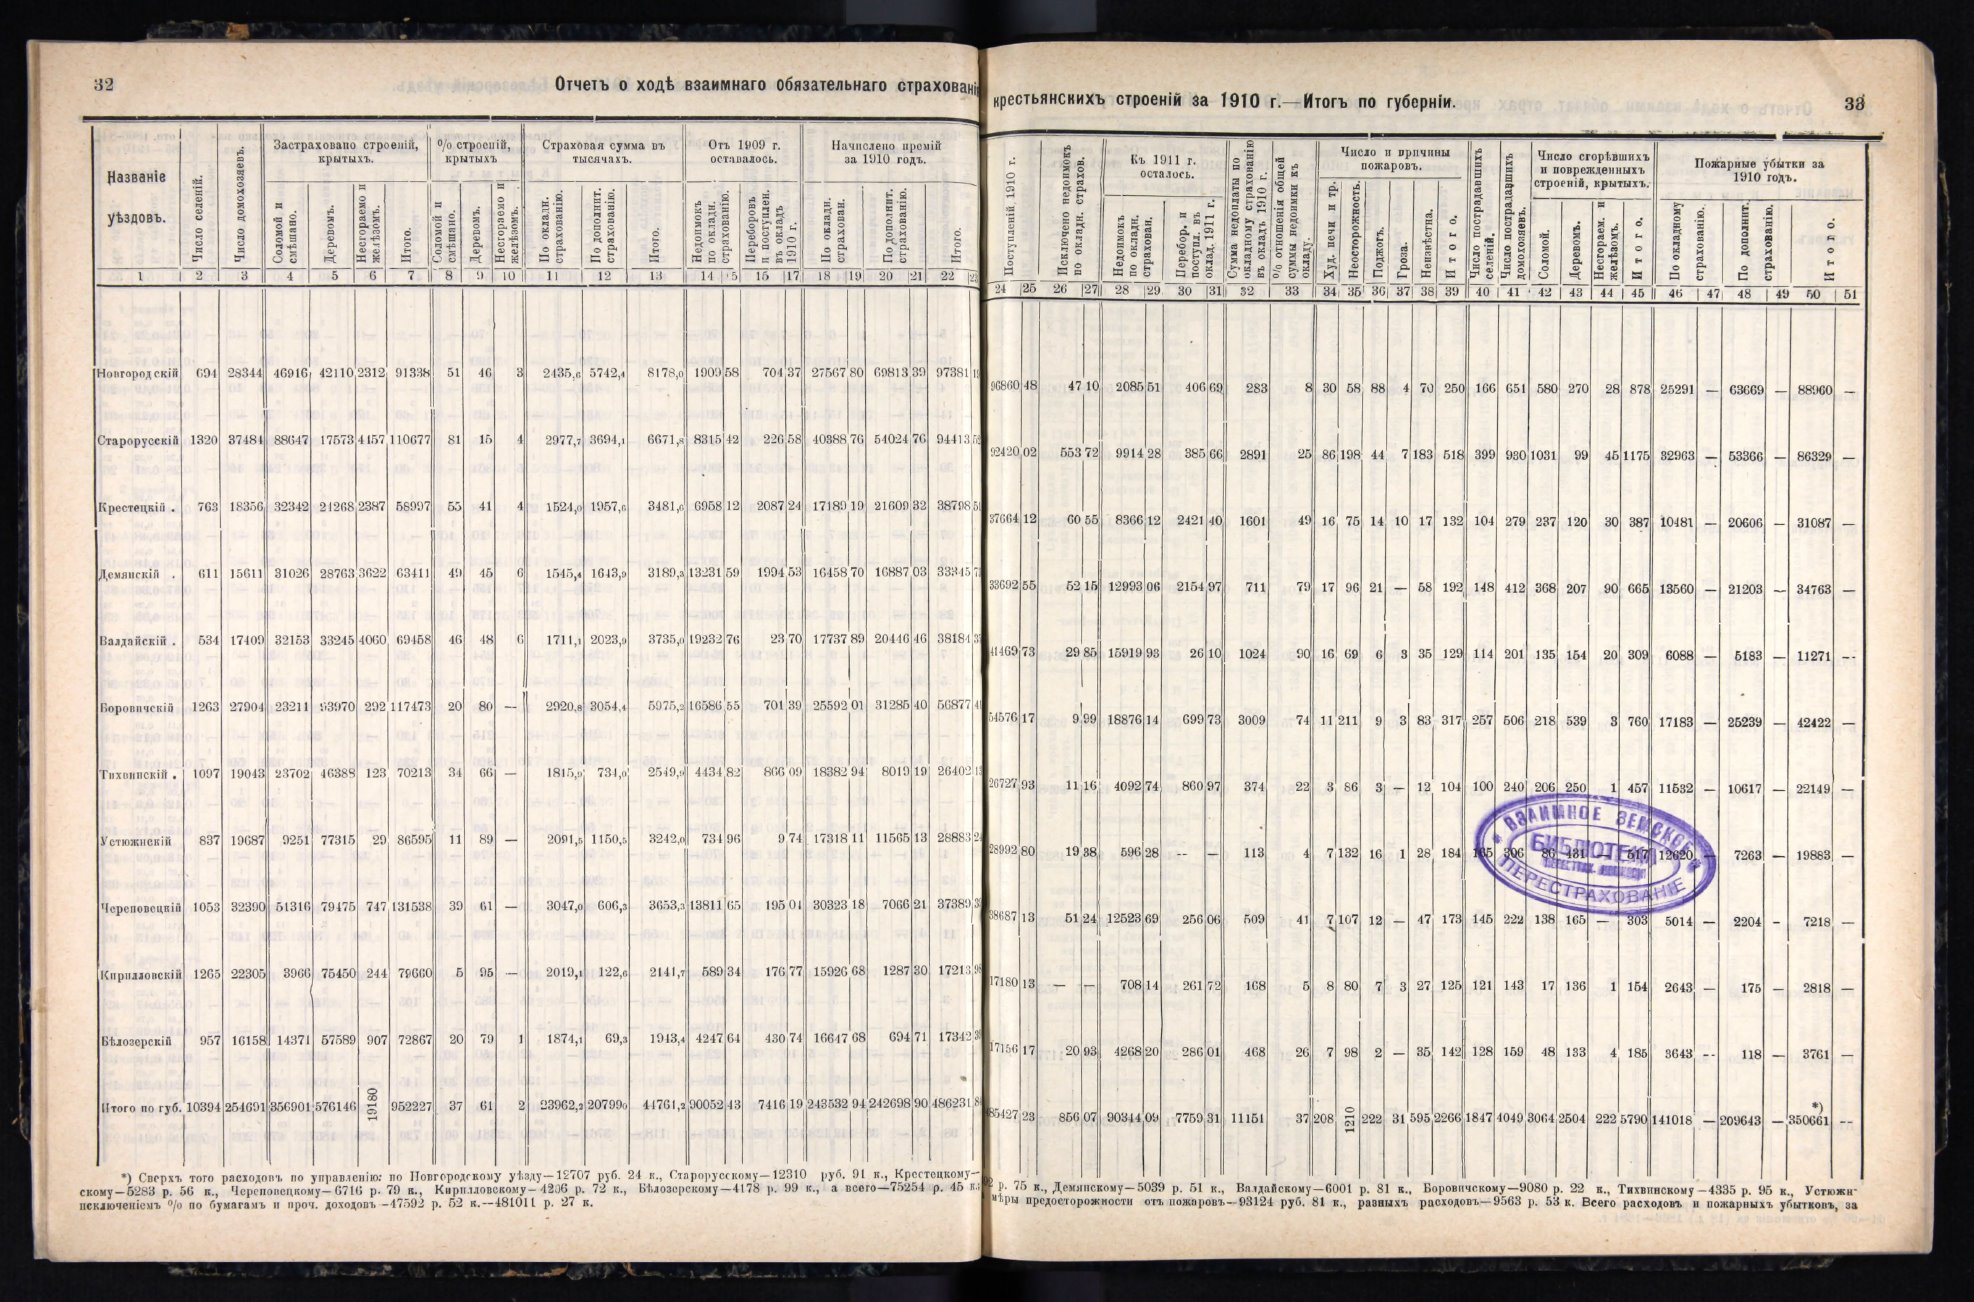 32
Отчетъ о ходѣ взаимнаго обязательнаго страхованія
Названіе уѣздовъ.
Число селеній.
Число домохозяевъ.
Застраховано строеній, крытыхъ.
Соломой и смѣшано.
Деревомъ.
Несгораемо и желѣзомъ.
Итого.
% строеній, крытыхъ
Соломой и смѣшано.
Деревомъ.
Несгораемо и желѣзомъ.
Страховая сумма въ тысячахъ.
По окладн. страхованію.
По дополнит. страхованію.
Итого.
Отъ 1909 г. оставалось.
Недоимокъ по окладн. страхованію.
Переборовъ и поступлен. въ окладъ 1910 г.
Начислено премій за 1910 годъ.
По окладн. страхован.
По дополнит. страхованію.
Итого.
1 2 3 4 5 6 7 8 9 10 11 12 13 14 15 17 18 19 20 21 22 23
Новгородскій 694 28344 46916 42110 2312 91338 51 46 3 2435,6 5742,4 8178,0 1909 58 704 37 27567 80 69813 39 97381 19
Старорусскій 1320 37484 88647 17573 4457 110677 81 15 4 2977,7 3694,1 6671,8 8315 42 226 58 40388 76 54024 76 94413 52
Крестецкій . 763 18356 32342 24268 2387 58997 55 41 4 1524,0 1957,6 3481,6 6958 12 2087 24 17189 19 21609 32 38798 51
Демянскій . 611 15611 31026 28763 3622 63411 49 45 6 1545,4 1643,9 3189,3 13231 59 1994 53 16458 70 16887 03 33345 73
Валдайскій . 534 17409 32153 33245 4060 69458 46 48 6 1711,1 2023,9 3735,0 19232 76 23 70 17737 89 20446 46 38184 35
Боровичскій 1263 27904 23211 93970 292 117473 20 80 — 2920,8 3054,4 5975,2 16586 55 701 39 25592 01 31285 40 56877 41
Тихвинскій . 1097 19043 23702 46388 123 70213 34 66 — 1815,9 734,0 2549,9 4434 82 866 09 18382 94 8019 19 26402 13
Устюжнскій 837 19687 9251 77315 29 86595 11 89 — 2091,5 1150,5 3242,0 734 96 9 74 17318 11 11565 13 28883 24
Череповецкій 1053 32390 51316 79475 747 131538 39 61 — 3047,0 606,3 3653,3 13811 65 195 01 30323 18 7066 21 37389 39
Кирилловскій 1265 22305 3966 75450 244 79660 5 95 — 2019,1 122,6 2141,7 589 34 176 77 15926 68 1287 30 17213 98
Бѣлозерскій 957 16158 14371 57589 907 72867 20 79 1 1874,1 69,3 1943,4 4247 64 430 74 16647 68 694 71 17342 39
Итого по губ. 10394 254691 356901 576146 19180 952227 37 61 2 23962,2 20799,0 44761,2 90052 43 7416 19 243532 94 242698 90 486231 84
*) Сверхъ того расходовъ по управленію: по Новгородскому уѣзду—12707 руб. 24 к., Старорусскому—12310 руб. 91 к., Крестецкому—
скому—5283 р. 56 к., Череповецкому—6716 р. 79 к., Кирилловскому—4206 р. 72 к., Бѣлозерскому—4178 р. 99 к., а всего—75254 р. 45 к.;
исключеніемъ % по бумагамъ и проч. доходовъ—47592 р. 52 к.—481011 р. 27 к.
крестьянскихъ строеній за 1910 г.—Итогъ по губерніи.
33
Поступленій, 1910 г.
Исключено недоимокъ по окладн. страхов.
Къ 1911 г. осталось.
Недоимокъ по окладн. страхован.
Перебор. и поступл. въ оклад. 1911 г.
Сумма недоплаты по окладному страхованію въ окладъ 1910 г.
% отношенія общей суммы недоимки къ окладу.
Число и причины пожаровъ.
Худ. печи и тр.
Неосторожность.
Поджогъ.
Гроза.
Неизвѣстна.
Итого.
Число пострадавшихъ селеній.
Число пострадавшихъ домохозяевъ.
Число сгорѣвшихъ и поврежденныхъ строеній, крытыхъ.
Соломой.
Деревомъ.
Несгораем. и желѣзомъ.
Итого.
Пожарные убытки за 1910 годъ.
По окладному страхованію.
По дополнит. страхованію.
Итого.
24 25 26 27 28 29 30 31 32 33 34 35 36 37 38 39 40 41 42 43 44 45 46 47 48 49 50 51
96860 48 47 10 2085 51 406 69 283 8 30 58 88 4 70 250 166 651 580 270 28 878 25291 — 63669 — 88960 —
92420 02 553 72 9914 28 385 66 2891 25 86 198 44 7 183 518 399 930 1031 99 45 1175 32963 — 53366 — 86329 —
37664 12 60 55 8366 12 2421 40 1601 49 16 75 14 10 17 132 104 279 237 120 30 387 10481 — 20606 — 31087 —
33692 55 52 15 12993 06 2154 97 711 79 17 96 21 — 58 192 148 412 368 207 90 665 13560 — 21203 — 34763 —
41469 73 29 85 15919 93 26 10 1024 90 16 69 6 3 35 129 114 201 135 154 20 309 6088 — 5183 — 11271 —
54576 17 9 99 18876 14 699 73 3009 74 11 211 9 3 83 317 257 506 218 539 3 760 17183 — 25239 — 42422 —
26727 93 11 16 4092 74 860 97 374 22 3 86 3 — 12 104 100 240 206 250 1 457 11532 — 10617 — 22149 —
28992 80 19 38 596 28 — — 113 4 7 132 16 1 28 184 165 306 86 431 — 517 12620 — 7263 — 19883 —
38687 13 51 24 12523 69 256 06 509 41 7 107 12 — 47 173 145 222 138 165 — 303 5014 — 2204 — 7218 —
17180 13 — — 708 14 261 72 168 5 8 80 7 3 27 125 121 143 17 136 1 154 2643 — 175 — 2818 —
17156 17 20 93 4268 20 286 01 468 26 7 98 2 — 35 142 128 159 48 133 4 185 3643 — 118 — 3761 —
485427 23 856 07 90344 09 7759 31 11151 37 208 1210 222 31 595 2266 1847 4049 3064 2504 222 5790 141018 — 209643 — *) 350661 —
ВЗАИМНОЕ ЗЕМСКОЕ
БИБЛІОТЕКА
ПЕРЕСТРАХОВАНІЕ
р. 75 к., Демянскому—5039 р. 51 к., Валдайскому—6001 р. 81 к., Боровичскому—9080 р. 22 к., Тихвинскому—4335 р. 95 к., Устюжн-
мѣры предосторожности отъ пожаровъ—93124 руб. 81 к., разныхъ расходовъ—9563 р. 53 к. Всего расходовъ и пожарныхъ убытковъ, за